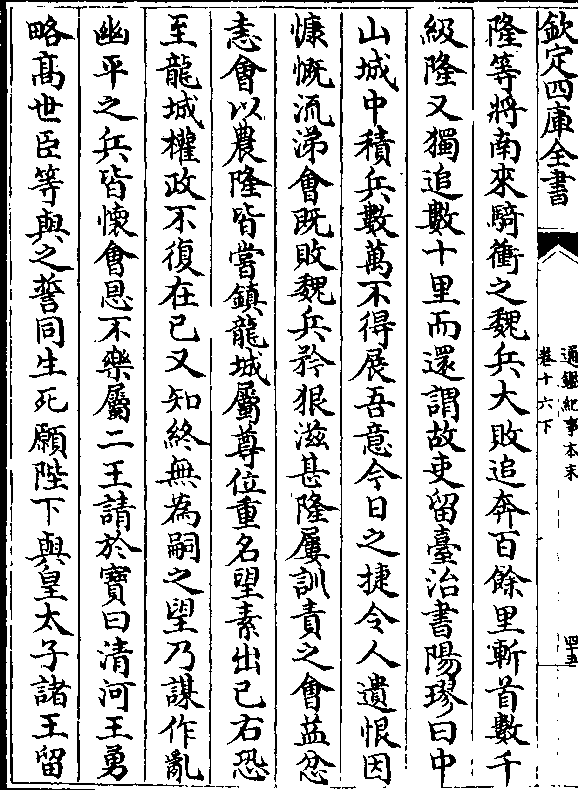 欽定四庫全書
通鑑紀事本末
卷十六下
四十五
隆等將南來騎衝之魏兵大敗追奔百餘里斬首數千
級隆又獨追數十里而還謂故吏留臺治書陽璆曰中
山城中積兵數萬不得展吾意今日之捷令人遺恨因
慷慨流涕會既敗魏兵矜狠滋甚隆屢訓責之會益忿
恚會以農隆皆嘗鎮龍城屬尊位重名望素出己右恐
至龍城權政不復在已又知終無為嗣之望乃謀作亂
幽平之兵皆懷會恩不樂屬二王請於寶曰清河王勇
略高世臣等與之誓同生死願陛下與皇太子諸王留